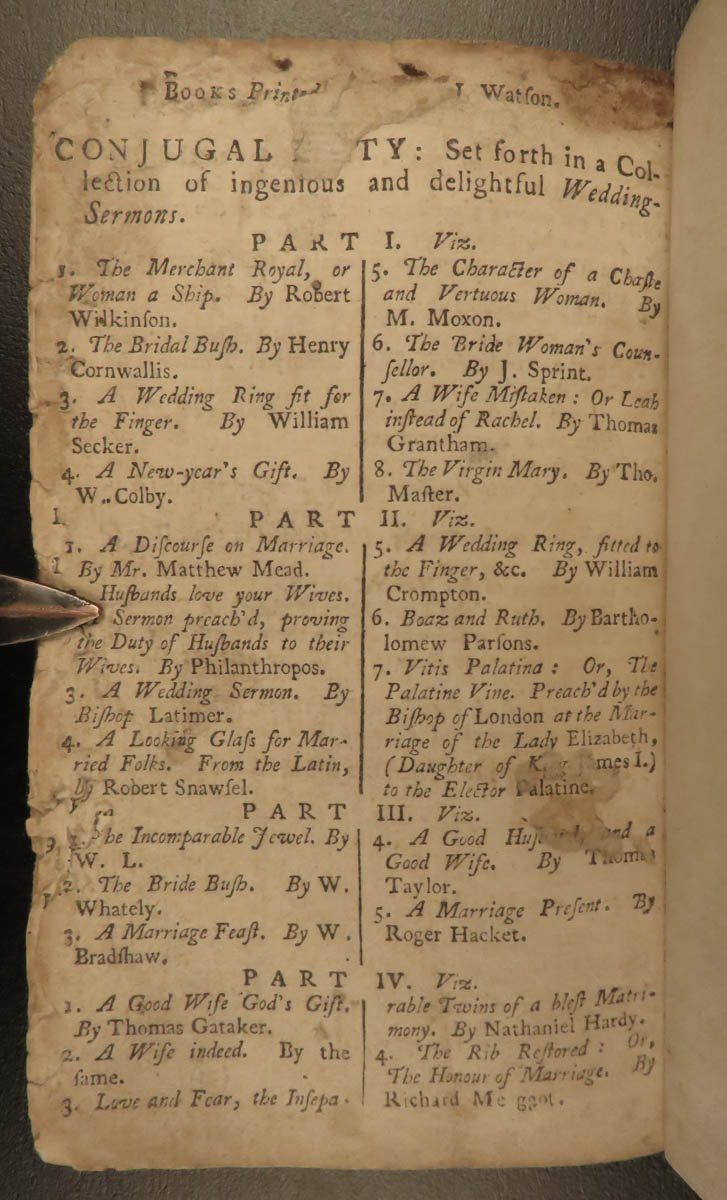 Books Printed J Watſon.
CONJUGAL TY: Set forth in a Col-
lection of ingenious and delightful Wedding-
Sermons.
PART I. Viz.
1. The Merchant Royal, or
Woman a Ship. By Robert
Wilkinſon.
2. The Bridal Buſh. By Henry
Cornwallis.
3. A Wedding Ring fit for
the Finger. By William
Secker.
4. A New-year's Gift. By
W. Colby.
5. The Character of a Chaſte
and Vertuous Woman. By
M. Moxon.
6. The Bride Woman's Coun-
ſellor. By J. Sprint.
7. A Wife Miſtaken: Or Leah
inſtead of Rachel. By Thomas
Grantham.
8. The Virgin Mary. By Tho.
Maſter.
PART II. Viz.
1. A Diſcourſe on Marriage.
By Mr. Matthew Mead.
Huſbands love your Wives.
Sermon preach'd, proving
the Duty of Huſbands to their
Wives. By Philanthropos.
3. A Wedding Sermon. By
Biſhop Latimer.
4. A Looking Glaſs for Mar-
ried Folks. From the Latin,
by Robert Snawſel.
5. A Wedding Ring, fitted to
the Finger, &c. By William
Crompton.
6. Boaz and Ruth. By Bartho-
lomew Parſons.
7. Vitis Palatina: Or, The
Palatine Vine. Preach'd by the
Biſhop of London at the Mar-
riage of the Lady Elizabeth,
(Daughter of King James I.)
to the Elector Palatine.
PART III. Viz.
1. The Incomparable Jewel. By
W. L.
2. The Bride Buſh. By W.
Whately.
3. A Marriage Feaſt. By W.
Bradſhaw.
4. A Good Huſband, and a
Good Wife. By Thomas
Taylor.
5. A Marriage Preſent. By
Roger Hacket.
PART IV. Viz.
1. A Good Wife God's Gift.
By Thomas Gataker.
2. A Wife indeed. By the
ſame.
3. Love and Fear, the Inſepa-
rable Twins of a bleſt Matri-
mony. By Nathaniel Hardy.
4. The Rib Reſtored: Or,
The Honour of Marriage. By
Richard Meggot.